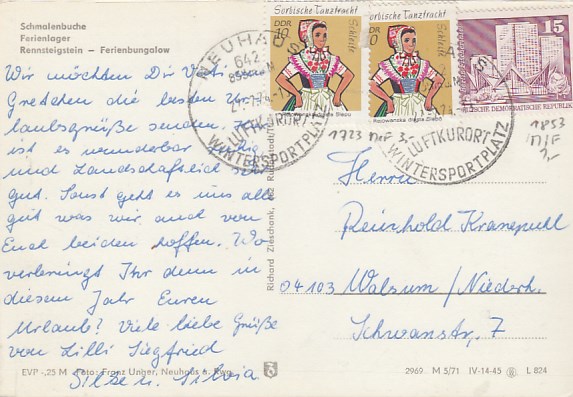 Schmalenbuche
Ferienlager
Rennsteigstein – Ferienbungalow
Wir möchten Dir
Gretchen die besten Ur-
laubsgrüße senden.
ist es wunderbar ruhig
und Landschaftlich sehr
gut. Sonst geht es uns alle
gut was wir auch von
Euch beiden hoffen. Wo
verbringt Ihr denn in
diesem Jahr Euren
Urlaub? Viele liebe Grüße
von Lilli Siegfried
Silke u. Silvia
EVP -,25 M Foto: Franz Unger, Neuhaus a. Rwg.
Richard Zieschank, Rudolstadt/Th
Sorbische Tanztracht
DDR
10
Schleife
Sorbische Tanztracht
DDR
10
Schleife
15
DEUTSCHE DEMOKRATISCHE REPUBLIK
NEUHAUS
642
LUFTKURORT
WINTERSPORTPLATZ
LUFTKURORT
WINTERSPORTPLATZ
1723 MiF 3,-
1853
MiF
3,-
Herrn
Reinhold Kranepuhl
04103 Walsum/Niederrh.
Schwanstr. 7
2969 M 5/71 IV-14-45 L 824